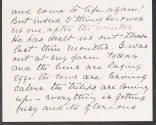 and come to life again!
But indeed I think he owes
us one, after the winter
He has dealt us out these
last three months. I was
out at my farm today
and the hens are laying
eggs, the cows are having
calves, the tulips are coming
up - everything is getting
busy and its glorious